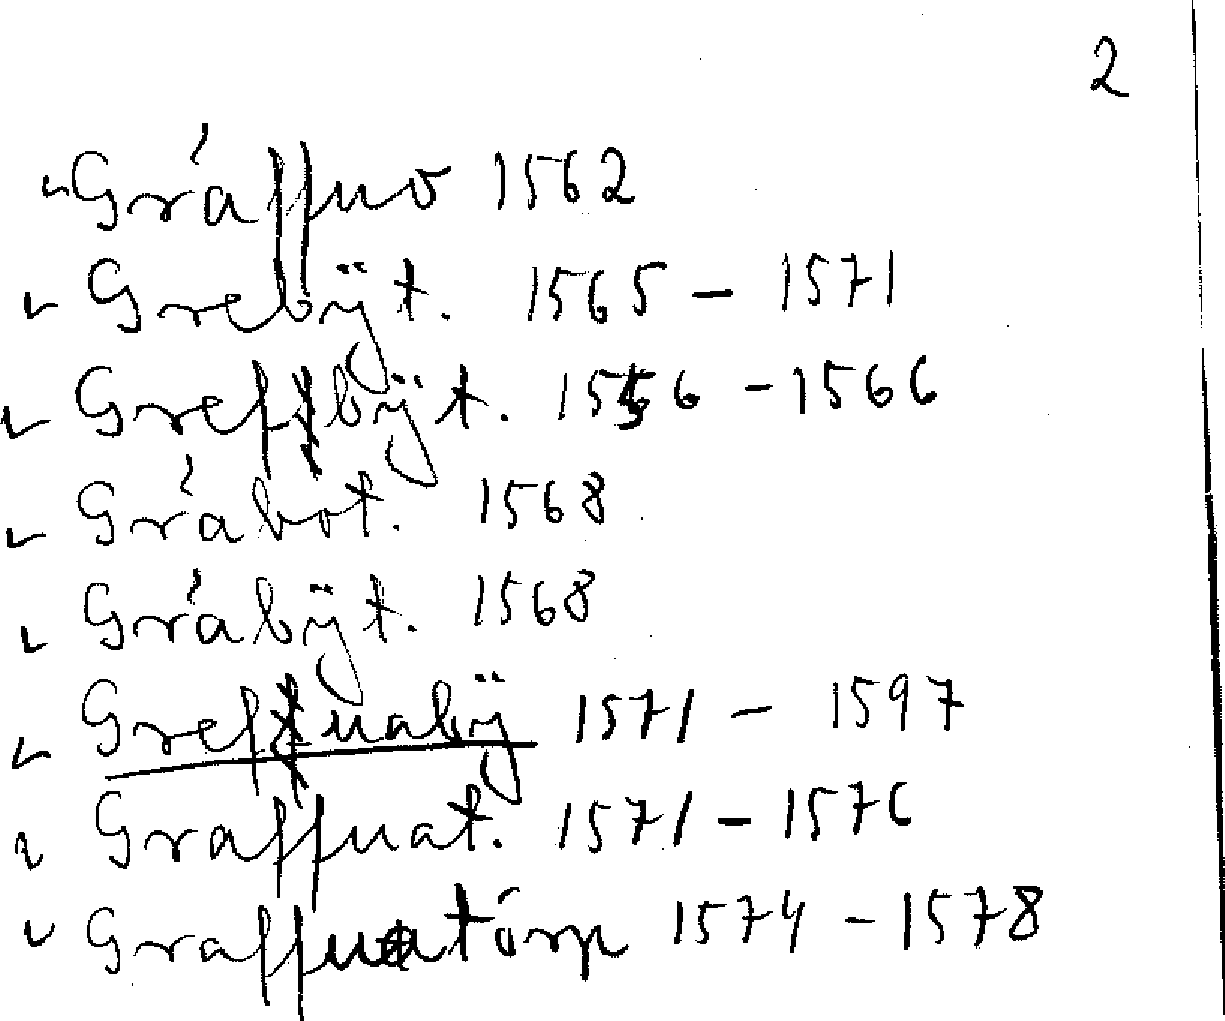 2
Gráffuo 1562
Grebÿt. 1565 - 1571
Greffbÿt. 1556 - 1566
Grábot. 1568
Grábÿt. 1568
Greffuabÿ 1571 - 1597
Graffuat. 1571 - 1576
Graffuatórp 1574 - 1578